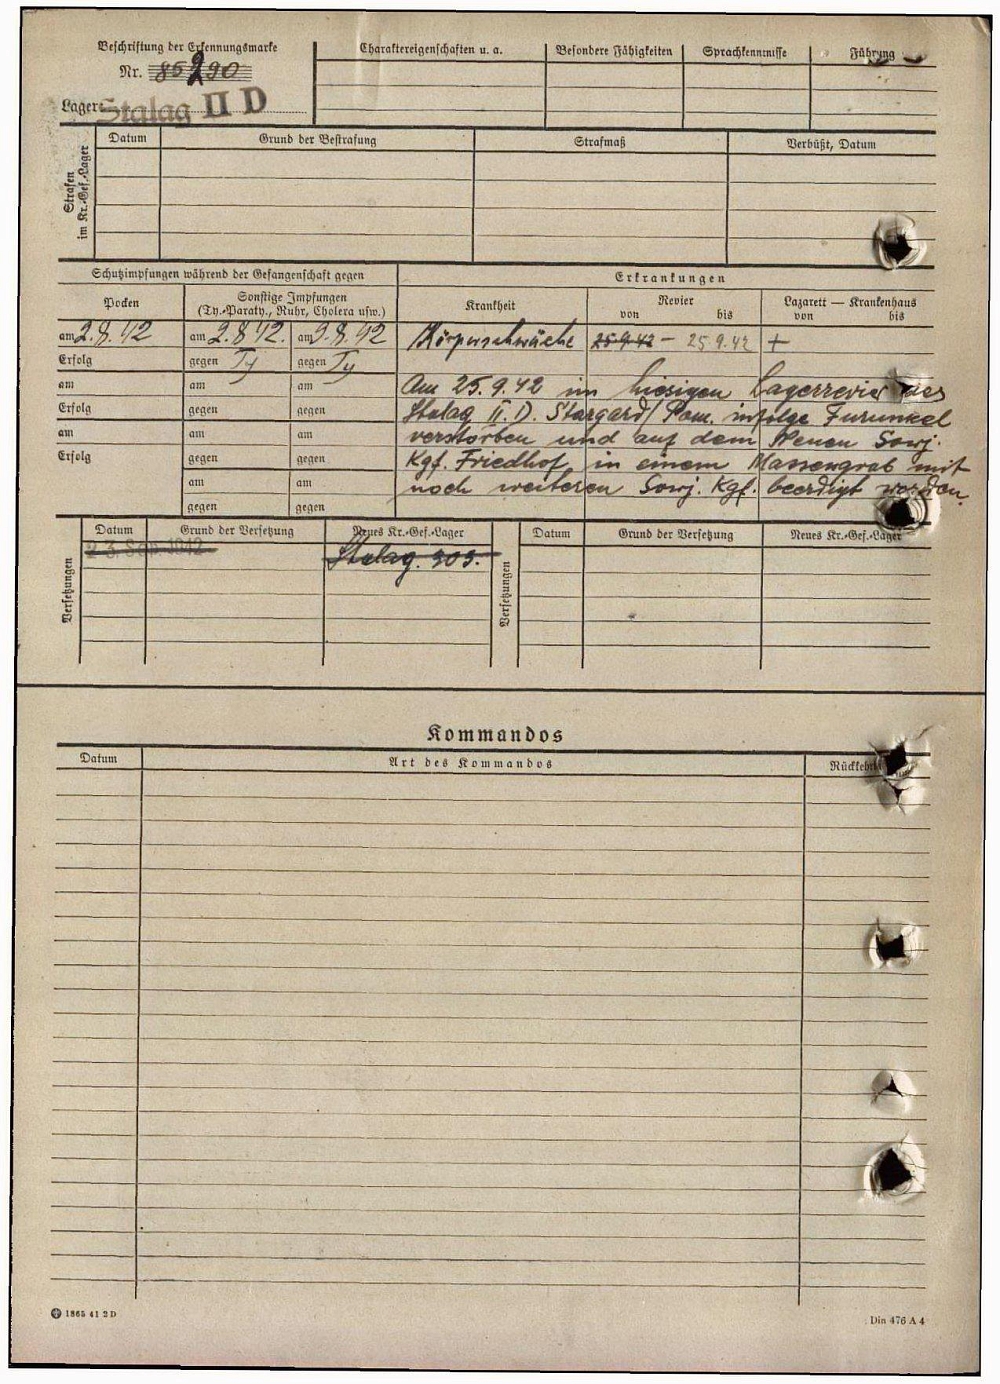 Beschriftung der Erkennungsmarke
Nr. 85290
Lager: Stalag II D
Charaktereigenschaften u. a.
Besondere Fähigkeiten
Sprachkenntnisse
Führung
Strafen im Kr.-Gef.-Lager
Datum
Grund der Bestrafung
Strafmaß
Verbüßt, Datum
Schutzimpfungen während der Gefangenschaft gegen
Erkrankungen
Pocken
Sonstige Impfungen
(Ty.-Paraty., Ruhr, Cholera usw.)
Krankheit
Revier
von bis
Lazarett — Krankenhaus
von bis
am 2.8.42 am 2.8.42. am 9.8.42 Körperschwäche 25.9.42 – 25.9.42 +
Erfolg gegen Ty gegen Ty
am am am Am 25.9.42 im hiesigen Lagerrevier des
Erfolg gegen gegen Stalag II. D. Stargard/Pom. infolge Furunkel
am am am verstorben und auf dem Neuen Sowj.
Erfolg gegen gegen Kgf. Friedhof, in einem Massengrab mit
am am noch weiteren Sowj. Kgf. beerdigt worden.
gegen gegen
Versetzungen
Datum Grund der Versetzung Neues Kr.-Gef.-Lager
23. Sep. 1942 Stalag. 303.
Versetzungen
Datum Grund der Versetzung Neues Kr.-Gef.-Lager
Kommandos
Datum Art des Kommandos
1865 41 2 D
Din 476 A 4